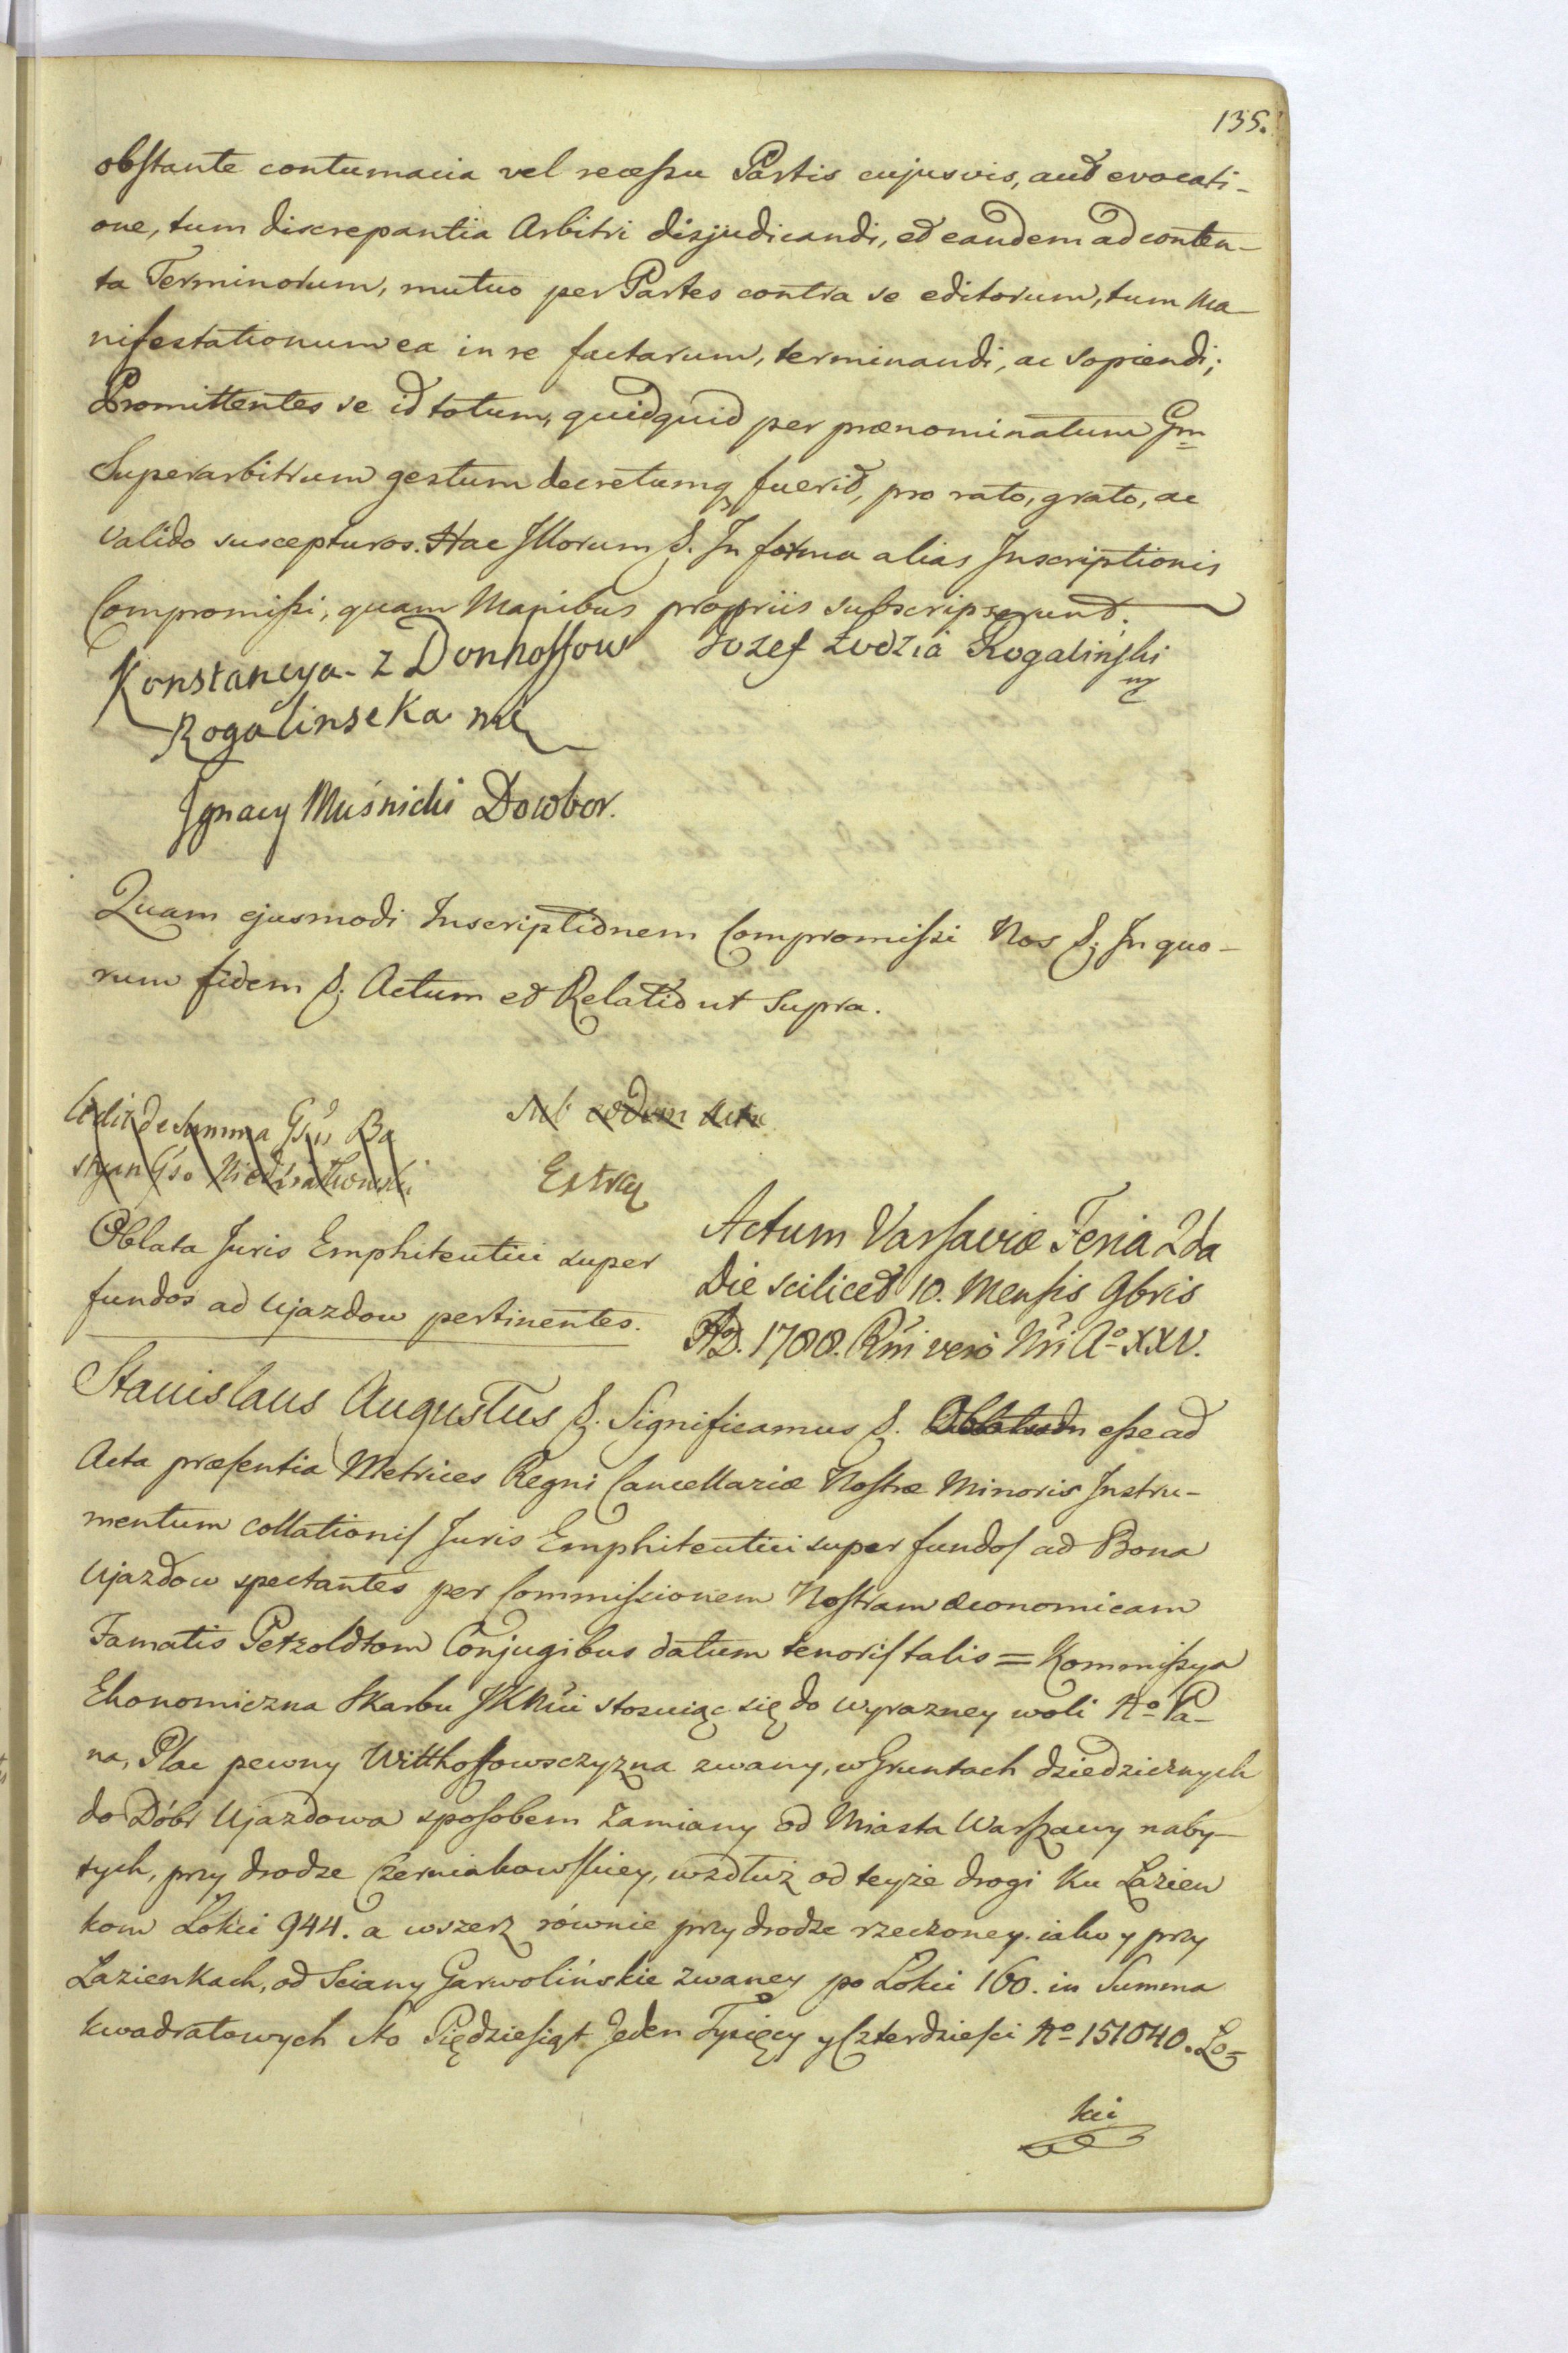 135.
obstante contumacia vel recessu Partis cujusvis, aut evocati-
one, tum discrepantia Arbitri disjudicandi, et eandem ad conten-
ta Terminorum, mutuo per Partes contra se editorum, tum Ma-
nifestationum ea in re factarum, terminandi, ac sopiendi;
Promittentes se id totum, quidquid per prænominatum Gm
Superarbitrum gestum decretumq fuerit, pro rato, grato, ac
valido suscepturos. Hac Illorum &. In forma alias Inscriptionis
Compromissi, quam Manibus propriis subscripserunt.
Konstancya z Donhoffow Jozef Łodzia Rogalinski
Rogalinska mp
Ignacy Muśnicki Dowbor.
Quam ejusmodi Inscriptionem Compromissi Nos &. In quo-
rum fidem &. Actum et Relatio ut supra.
de Summa Ba
sub eodem Actu
Niedzialkowski
Extrad
Oblata Juris Emphiteutici super
fundos ad Ujazdow pertinentes.
Actum Varsaviæ Feria 2da
Die scilicet 10. Mensis 9bris
AD. 1788. Rni vero Nri Ao XXV.
Stanislaus Augustus &. Significamus &. esse ad
Acta præsentia Metrices Regni Cancellariæ Nostræ Minoris Instru-
mentum collationis Juris Emphiteutici super fundos ad Bona
Ujazdow spectantes per Commissionem Nostram œconomicam
Famatis Petzoldtom Conjugibus datum tenoris talis = Kommissya
Ekonomiczna Skarbu JKMci stosuiąc się do wyrazney woli No Pa-
na, Plac pewny Witthoffowsczyzna zwany, w Gruntach dziedzicznych
do Dóbr Ujazdowa sposobem zamiany od Miasta Warszawy naby-
tych, przy drodze Czerniakowskiey, wzdłuż od teyże drogi ku Lazien
kom Lokci 944. a wszerz równie przy drodze rzeczoney. iako y przy
Lazienkach, od Sciany Garwolińskie zwaney po Lokci 160. in Summa
kwadratowych sto Pięćdziesiąt Jeden Tysięcy y Czterdzieści No 151040. Lo-
kci